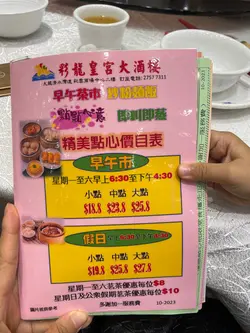 彩龍皇宮大酒樓
訂座電話: 2757 7311
早午茶市
點點心意 即叫即蒸
精美點心價目表
早午市
星期一至六早上6:30至下午4:30
小點 中點 大點
$18.8 $23.8 $25.8
假日
小點 中點 大點
$19.8 $25.8 $27.8
星期一至六茗茶優惠每位$8
星期日及公眾假期茗茶優惠每位$10
圖片祇供參考
多謝加一服務費
10-2023
10-2023